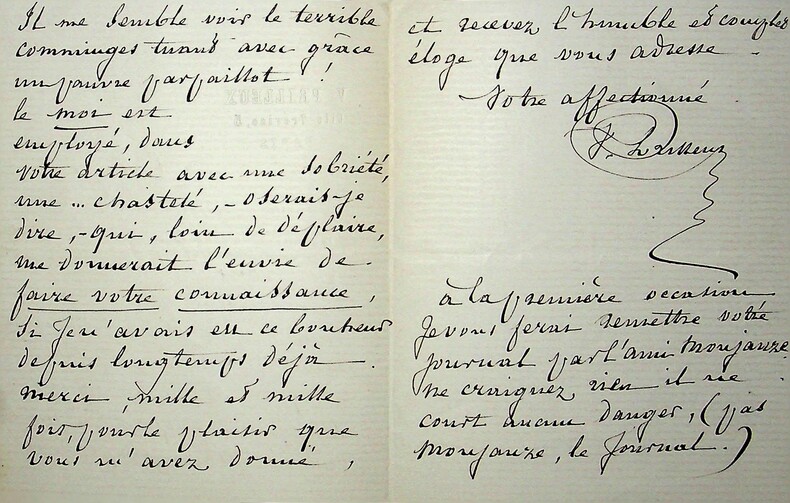 Il me semble voir le terrible
comminges tuant avec grâce
un pauvre parpaillot !
le moi est
employé, dans
votre article avec une sobriété,
une ... chasteté, - oserais-je
dire, - qui, loin de déplaire,
me donnerait l'envie de
faire votre connaissance,
si je n'avais eu ce bonheur
depuis longtemps déjà.
merci, mille et mille
fois, pour le plaisir que
vous m'avez donné,
et recevez l'humble et complet
éloge que vous adresse
Votre affectionné
à la première occasion
Je vous ferai remettre votre
journal par l'ami Monjauze.
ne craignez rien il ne
court aucun danger, (pas
Monjauze, le Journal.)